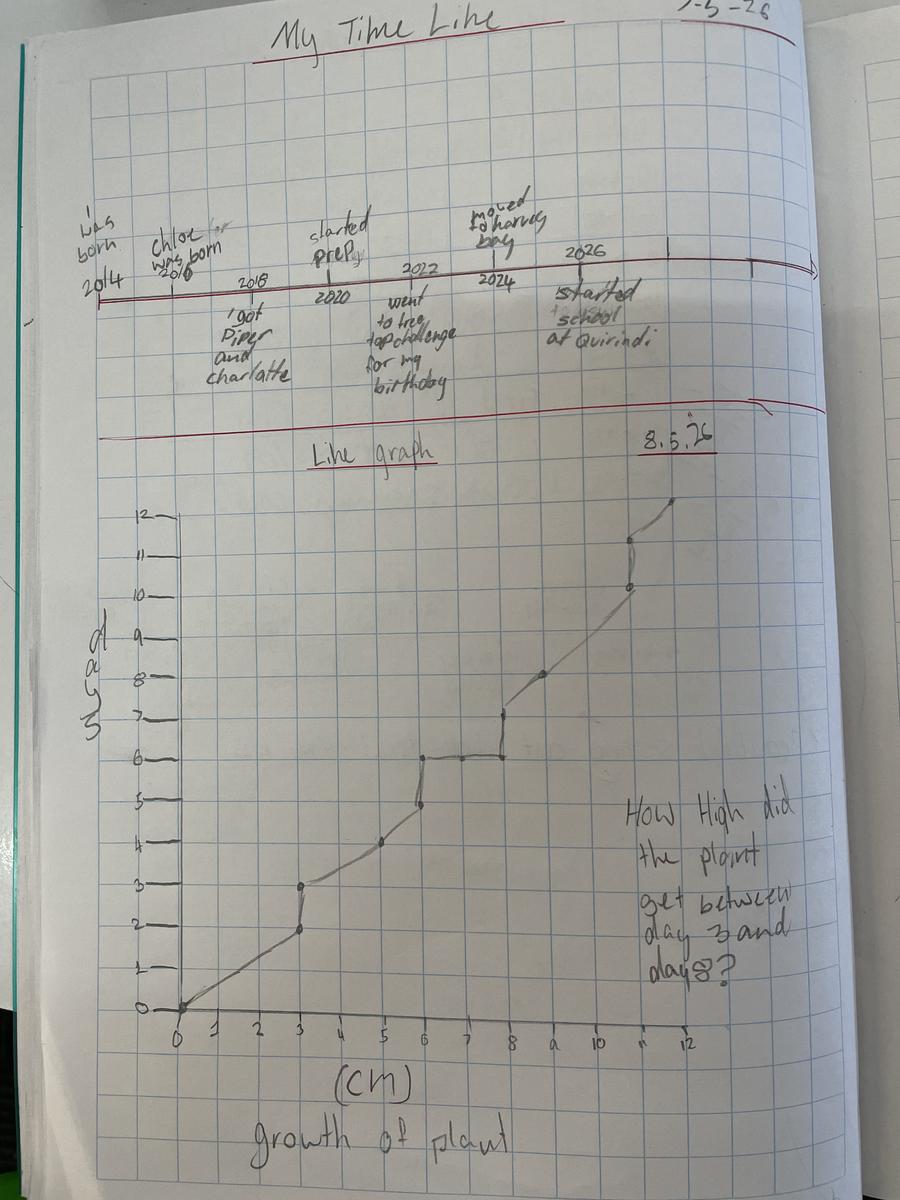 My Time Line
-5-26
i was born
2014
Chloe was born
2016
2018
i got Piper and charlatte
started prep
2020
2022
went to tree top challenge for my birthday
moved to harvey bay
2024
2026
started school at Quirindi
Line graph
8.5.26
12
11
10
9
8
7
6
5
4
3
2
1
0
days
0 1 2 3 4 5 6 7 8 9 10 11 12
(cm)
growth of plant
How High did
the plant
get between
day 3 and
day 8?